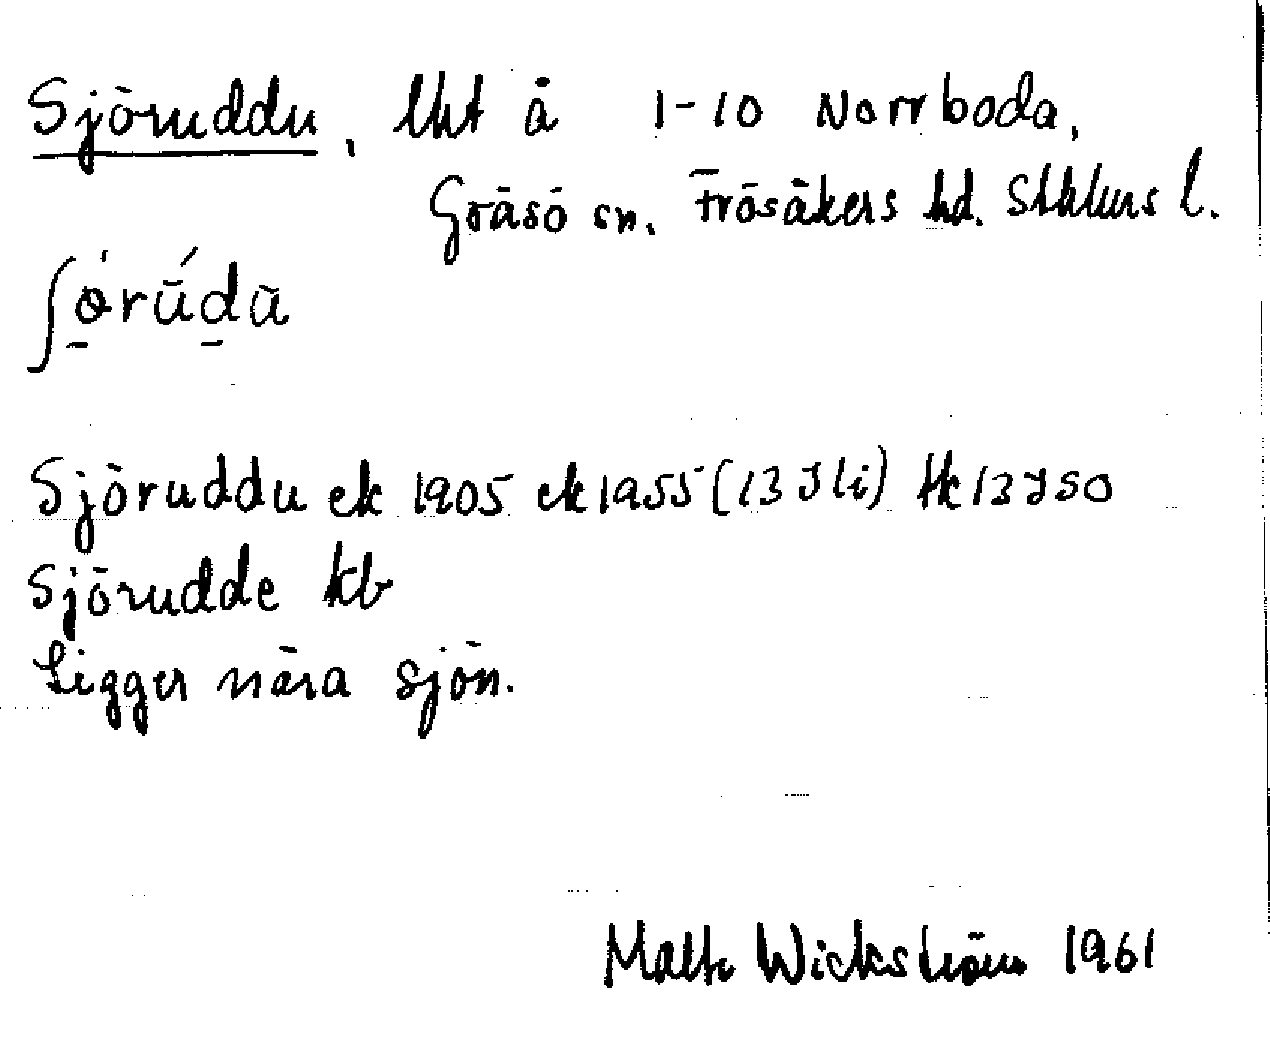 Sjöruddu, lht å 1-10 Norrboda,
Gräsö sn. Frösåkers hd. Sthlms l.
Sjöruddu ek 1905 ek 1955 (13 J li) tk 13 J SO
Sjörudde kb
Ligger nära sjön.
Malte Wickström 1961